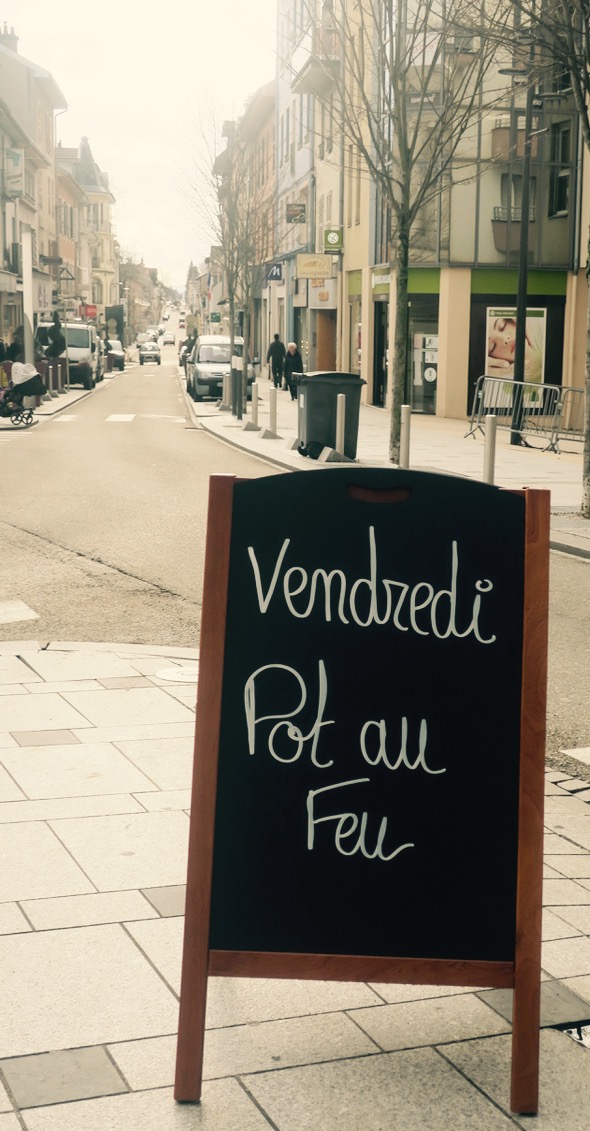 Vendredi
Pot au
Feu